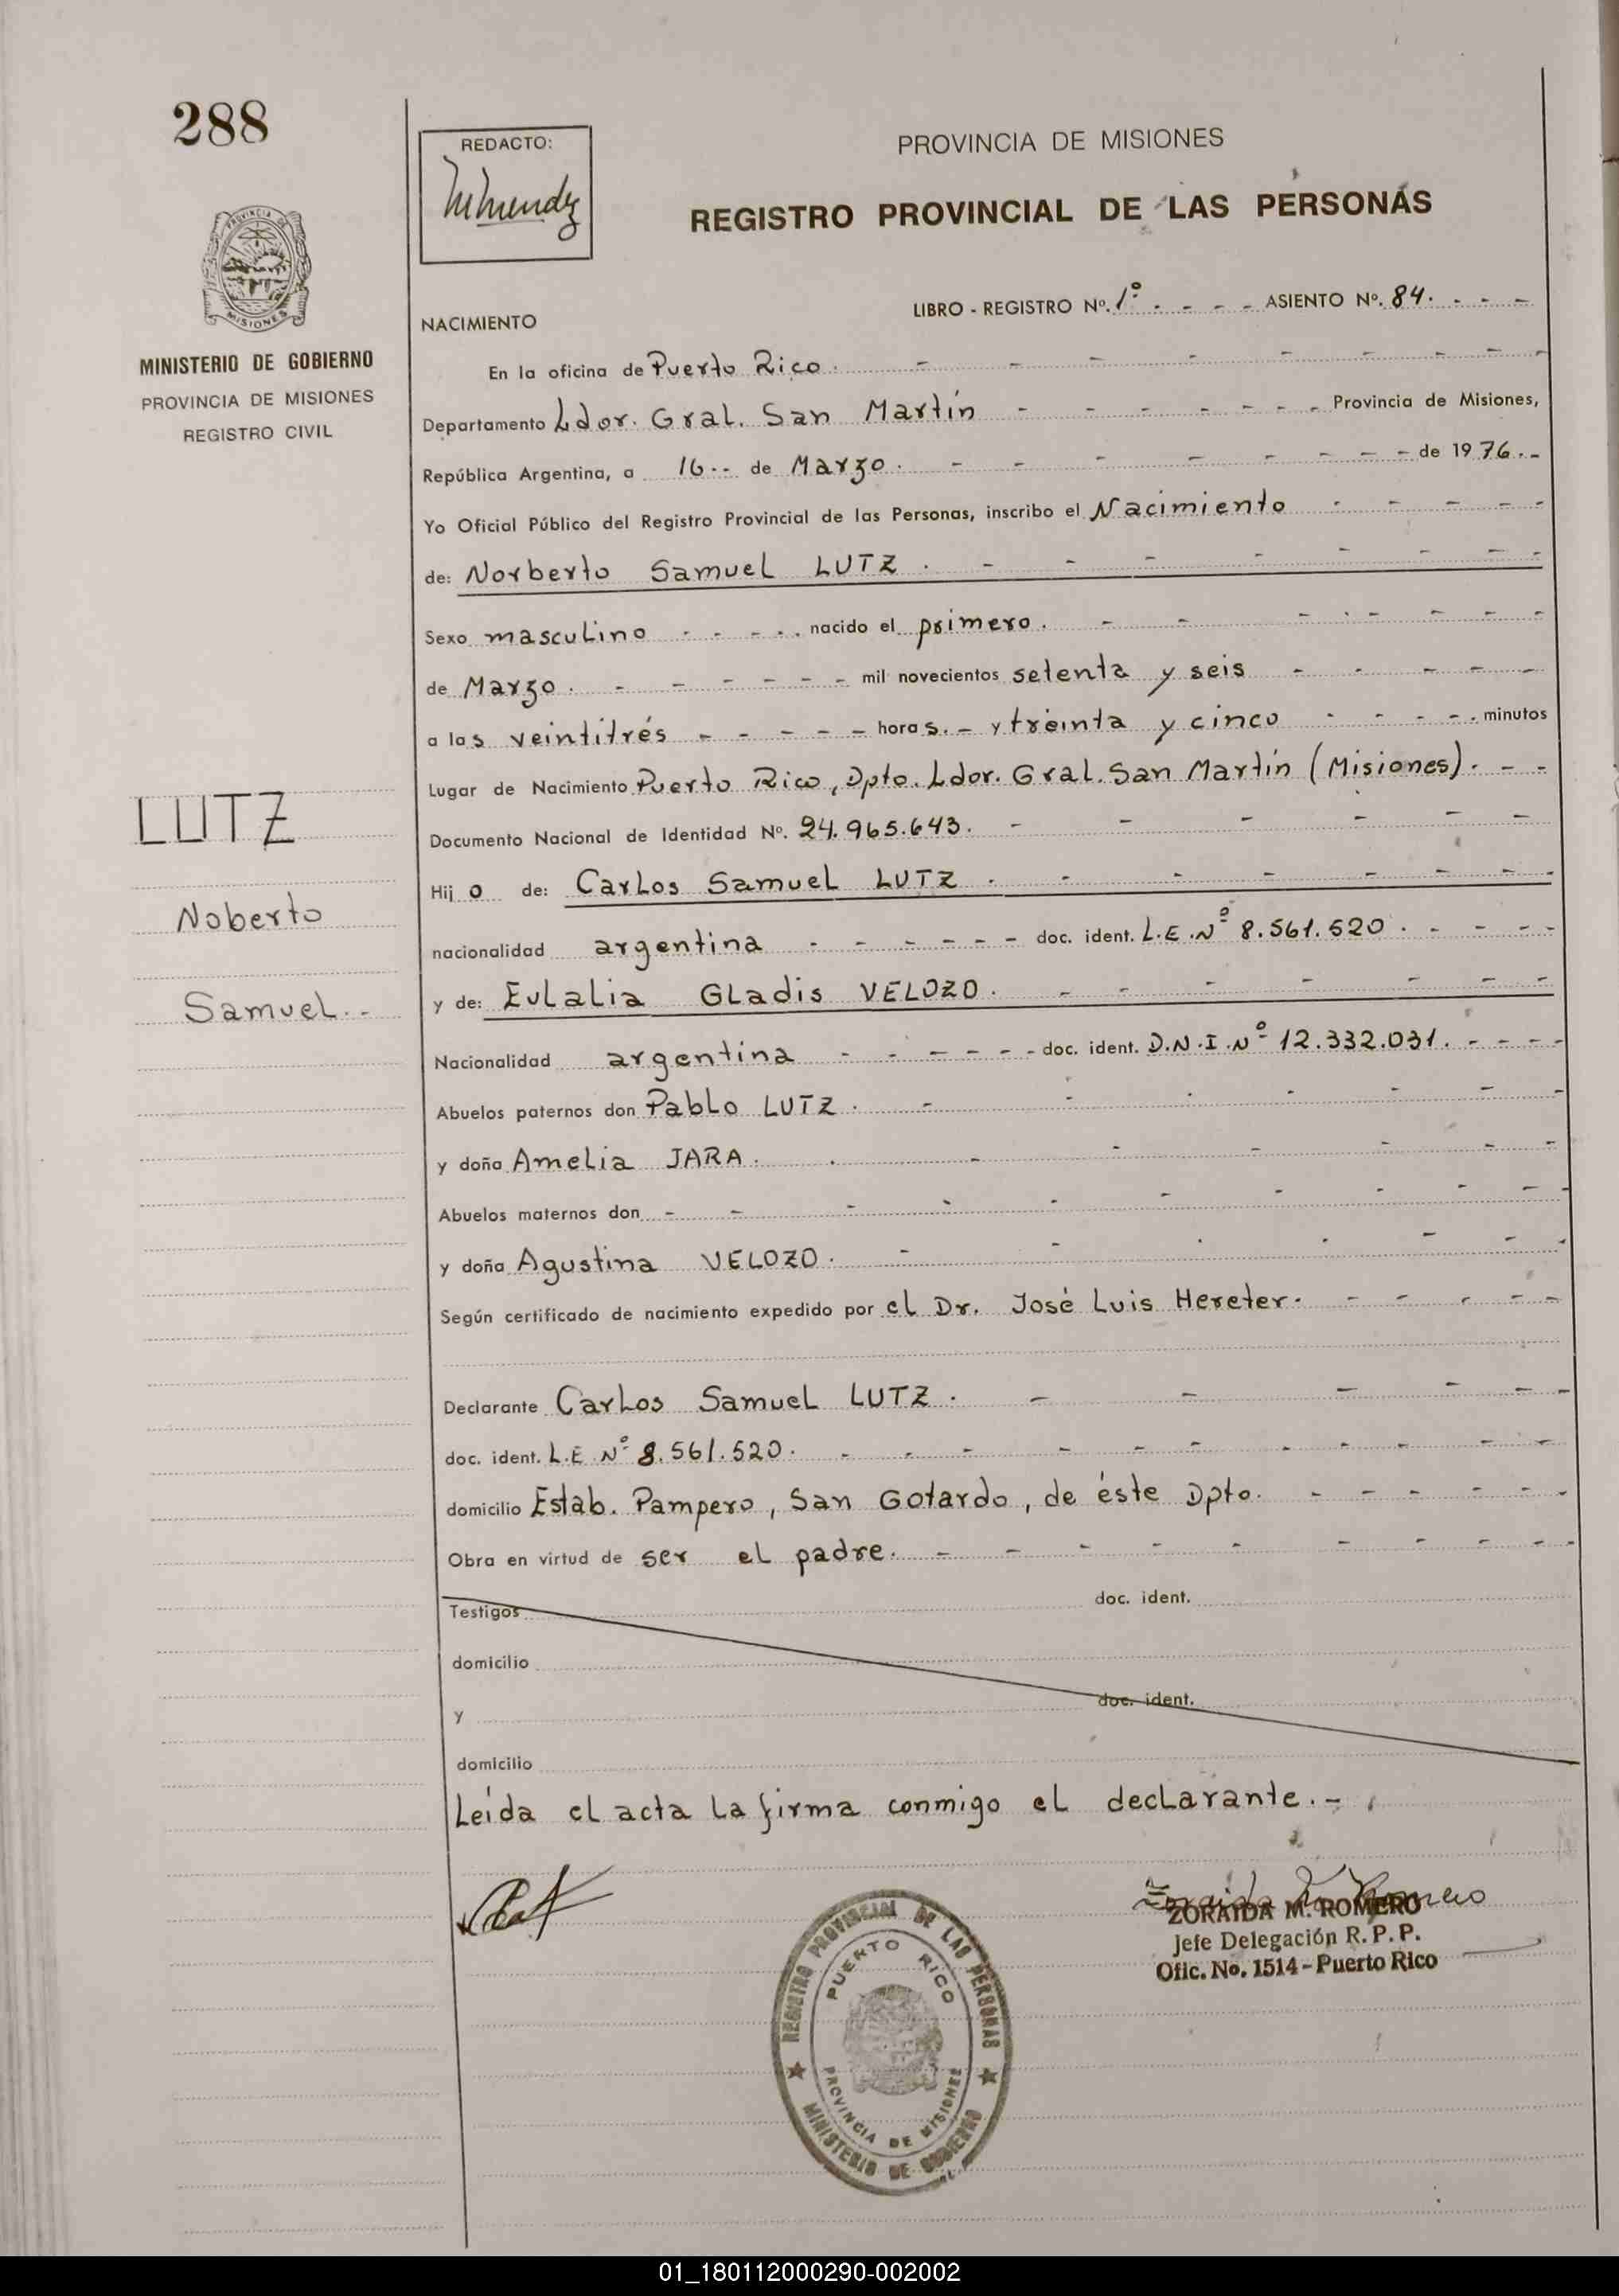 288
REDACTO:
PROVINCIA DE MISIONES
REGISTRO PROVINCIAL DE LAS PERSONAS
MINISTERIO DE GOBIERNO
PROVINCIA DE MISIONES
REGISTRO CIVIL
LUTZ
Noberto
Samuel.-
LIBRO - REGISTRO Nº. 1º - - - ASIENTO Nº. 84. - - -
NACIMIENTO
En la oficina de Puerto Rico.
Departamento Ldor. Gral. San Martín - - - Provincia de Misiones,
República Argentina, a 16.- de Marzo. - - - de 1976.-
Yo Oficial Público del Registro Provincial de las Personas, inscribo el Nacimiento
de: Norberto Samuel LUTZ.
Sexo masculino - - - nacido el primero.
de Marzo. - - - mil novecientos setenta y seis
a las veintitrés - - - horas.- y treinta y cinco - - - minutos
Lugar de Nacimiento Puerto Rico, Dpto. Ldor. Gral. San Martín (Misiones). - -
Documento Nacional de Identidad Nº. 24.965.643.
Hijo de: Carlos Samuel LUTZ.
nacionalidad argentina - - - doc. ident. L.E.Nº 8.561.520.
y de: Eulalia Gladis VELOZO.
Nacionalidad argentina - - - doc. ident. D.N.I.Nº 12.332.031.
Abuelos paternos don Pablo LUTZ.
y doña Amelia JARA.
Abuelos maternos don - - -
y doña Agustina VELOZO.
Según certificado de nacimiento expedido por el Dr. José Luis Hereter.
Declarante Carlos Samuel LUTZ.
doc. ident. L.E Nº 8.561.520.
domicilio Estab. Pampero, San Gotardo, de éste Dpto.
Obra en virtud de ser el padre.
Testigos doc. ident.
domicilio
y doc. ident.
domicilio
Leída el acta la firma conmigo el declarante.-
ZORAIDA M. ROMERO
Jefe Delegación R.P.P.
Ofic. No. 1514 - Puerto Rico
REGISTRO PROVINCIAL DE LAS PERSONAS
PUERTO RICO
PROVINCIA DE MISIONES
MINISTERIO DE GOBIERNO
01_180112000290-002002